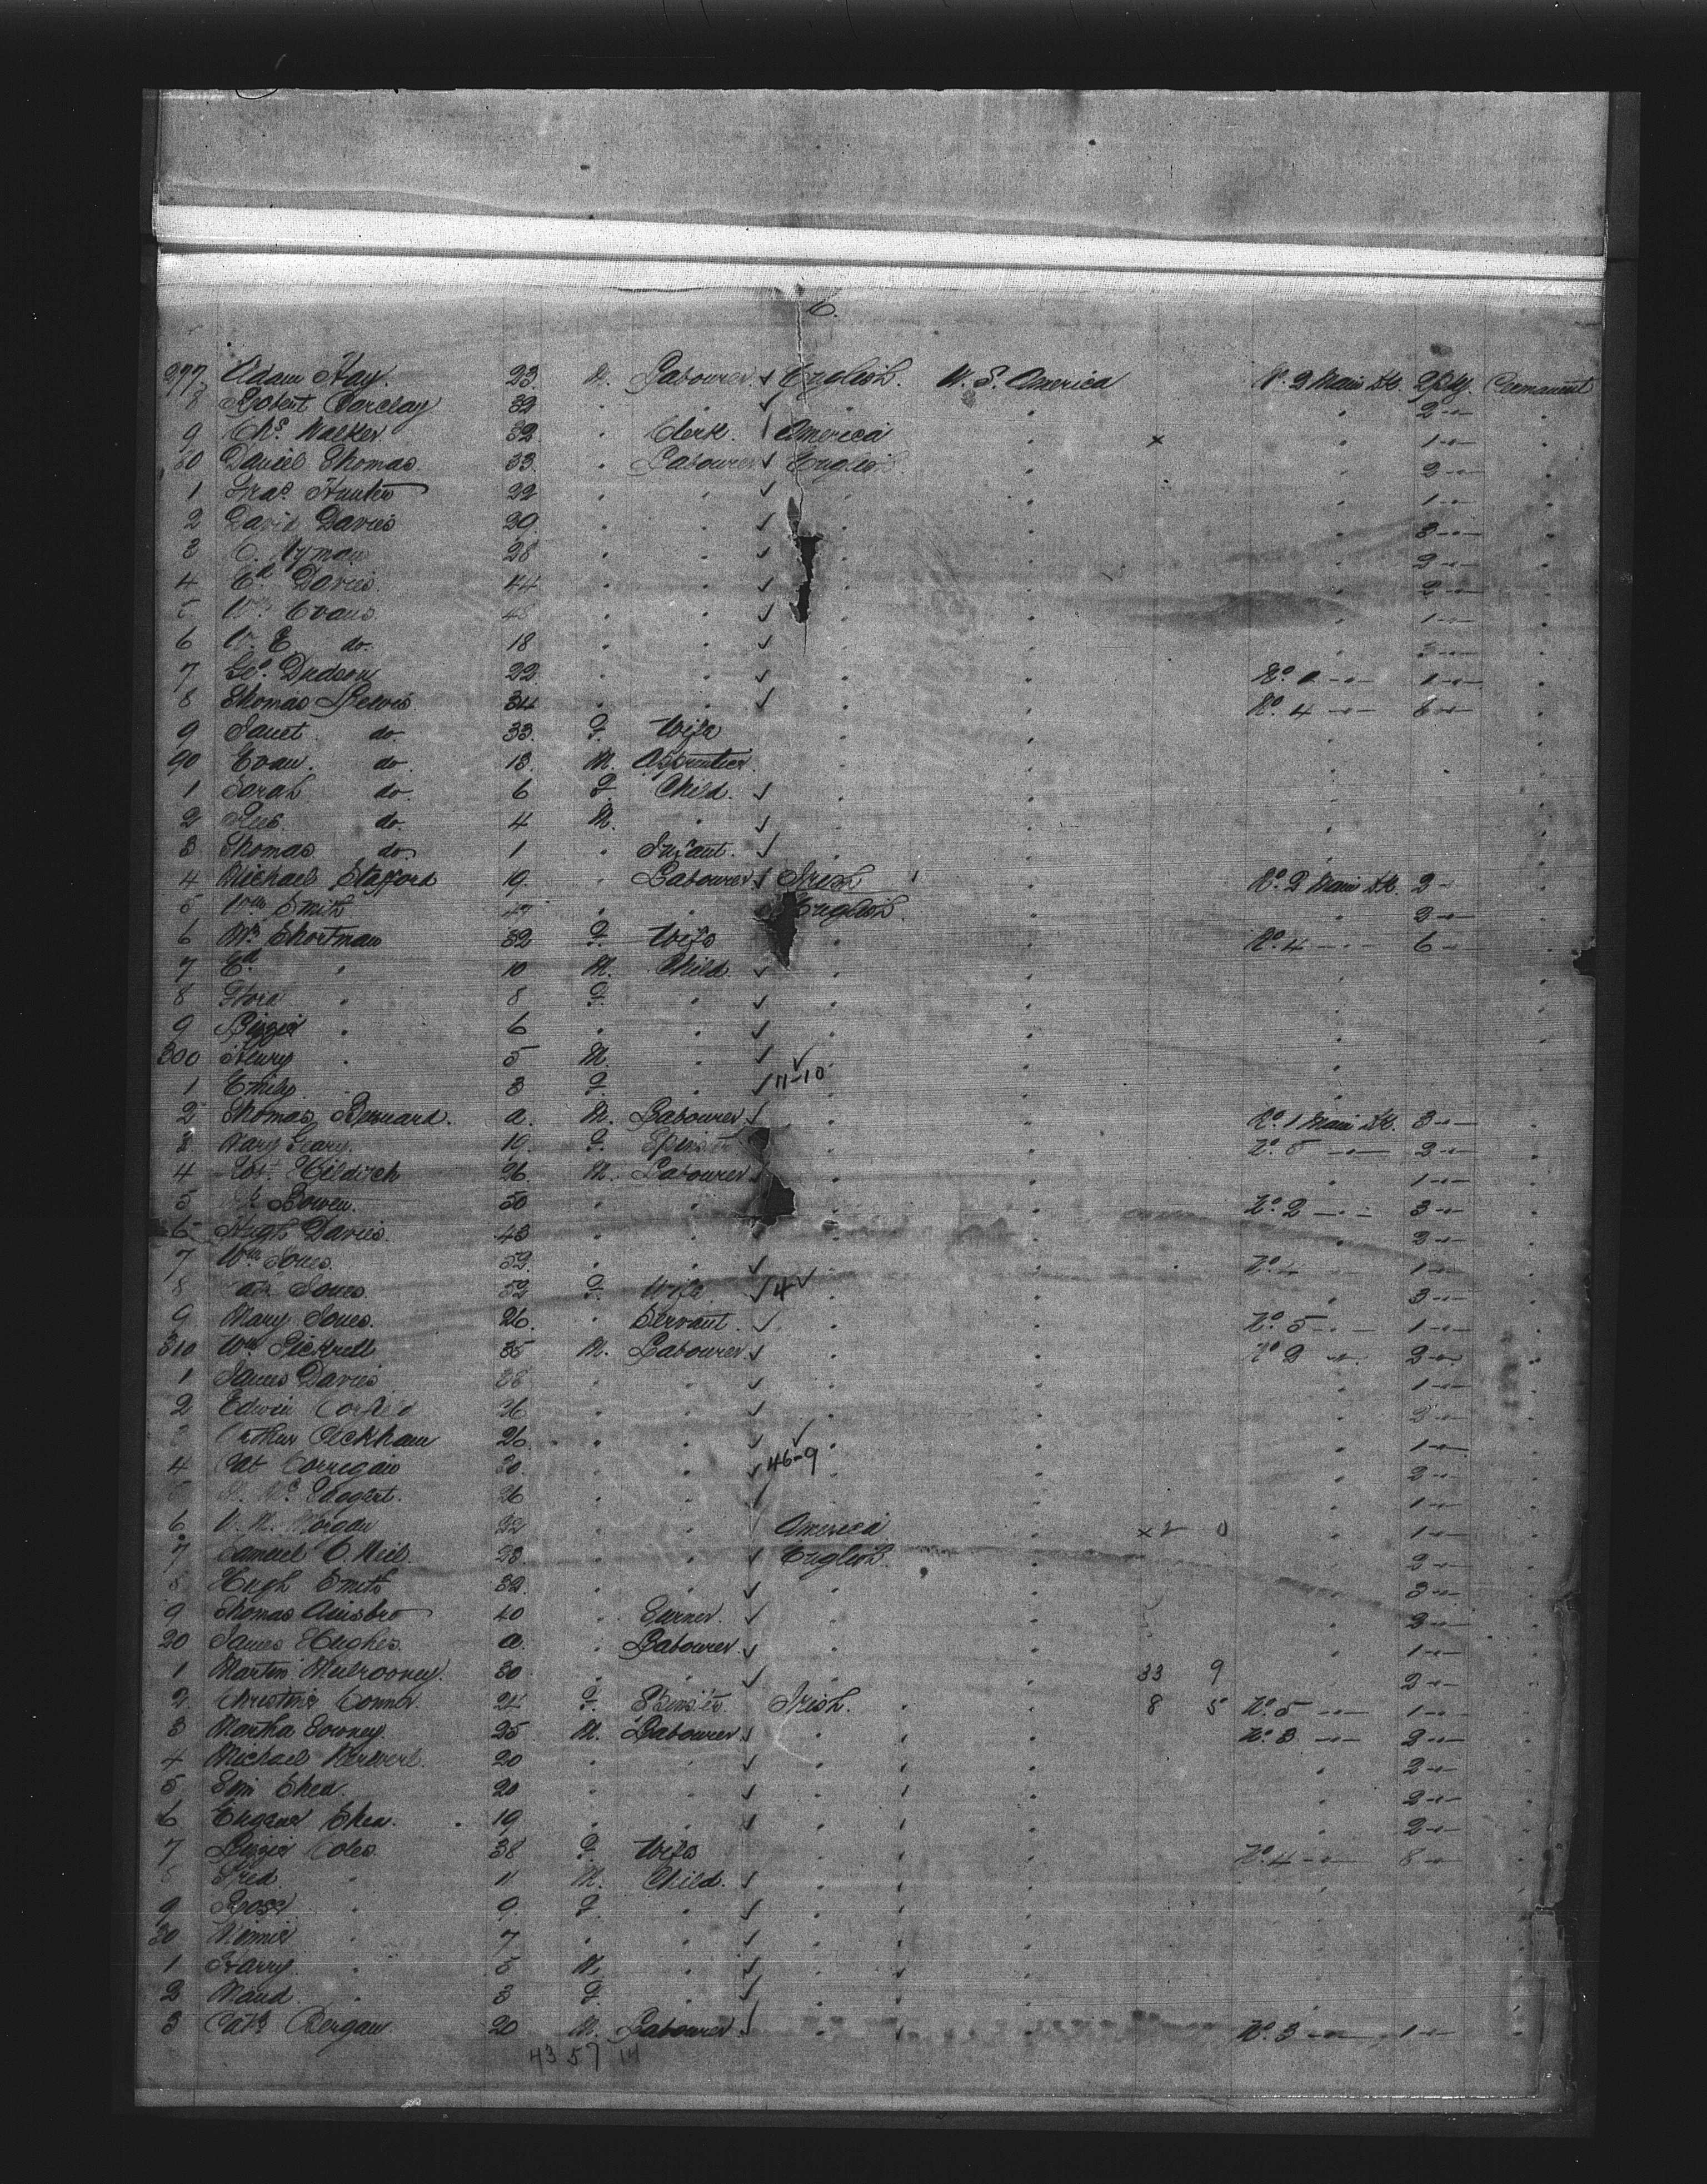 6.
277. Adam Hay. 23. M. Labourer. ✓ English. U. S. America No. 2 Main Dk. 2 Pkg. Permanent
8 Robert Barclay 32 " " ✓ " " " 2 -"- "
9 Chs. Walker 32 " Clerk. America " x " 1 -"- "
80 Daniel Thomas. 33. " Labourer ✓ English " " 2 -"- "
1 Hunter 22 " " ✓ " " " 1 -"- "
2 David Davies 29. " " ✓ " " " 3 -"- "
3 28 " " ✓ " " " 2 -"- "
4 Ed. Davies. 44 " " ✓ " " " 2 -"- "
5 Wm. Evans. " " ✓ " " " 1 -"- "
6 W. E. do. 18 " " ✓ " " " "
7 Geo. Dudson 22 " " ✓ " " No. 1 -"- 1 -"- "
8 Thomas Lewis 34 " " ✓ " " No. 4 -"- 6 -"- "
9 Janet do. 33. F. Wife " " " "
90 Evan. do. 13. M. Apprentice " " " "
1 Sarah do. 6 F. Child. ✓ " " " "
2 Rees. do. 4 M. " ✓ " " " "
3 Thomas do. 1 " Infant. ✓ " " " "
4 Michael Stafford 19. " Labourer ✓ Irish " No. 2 Main Dk. 2 - "
5 Wm Smith. 47 " " English. " " 2 -"- "
6 Mrs. Shortman 32 F. Wife " " No. 4 -"- 6 -"- "
7 Ed. " 10 M. Child. ✓ " " " "
8 " 8 F. " ✓ " " " "
9 Lizzie " 6 " " ✓ " " " "
300 Henry " 5 M. " ✓ " " " "
1 Emily. 3 F. " ✓ 11-10 " " "
2 Thomas a. M. Labourer. ✓ " " No. 1 Main Dk. 3 -"- "
3 Mary Geary. 19. F. Spinster " " No. 5 -"- 2 -"- "
4 Hildich 26. M. Labourer ✓ " " " 1 -"- "
5 Bowen. 50 " " " " No. 2 -"- 3 -"- "
6 Hugh Davies. 43 " " " " " 2 -"- "
7 Wm. Jones. 52. " " ✓ " " 1 -"- "
8 Jones. 52 F. Wife ✓ 4 ✓ " " 3 -"- "
9 Mary Jones. 26. " Servant. ✓ " " No. 5 -"- 1 -"- "
310 Wm. Pickrell 35 M. Labourer. ✓ " " No. 2 -"- 2 -"- "
1 James Davies " " ✓ " " " 1 -"- "
2 Edwin Corfield 26 " " ✓ " " " 2 -"- "
Arthur Peckham 26. " " ✓ ✓ " " " 1 -"- "
4 Pat Corregan 30. " " ✓ 46-9 " " 2 -"- "
26 " " ✓ " " " 1 -"- "
6 Morgan 22 " " America " x 2 0 " 1 -"- "
7 Samuel O. Neil. 23. " " ✓ English. " " 2 -"- "
8 Hugh Smith 32. " " ✓ " " " 3 -"- "
9 Thomas Ainsbro 40 " Turner. ✓ " " " 2 -"- "
20 James Hughes. a. " Labourer ✓ " " " 1 -"- "
1 Martin Mulrooney. 30. " " ✓ " " 33 9 2 -"- "
2 Christina Connor. 24 F. Spinster Irish. " " 8 5 No. 5 -"- 1 -"- "
3 Martha Downey. 25 M. Labourer. ✓ " " " No. 3 -"- 2 -"- "
4 Michael 20 " " ✓ " " " " 2 -"- "
5 Shea. 20 " " ✓ " " " " 2 -"- "
6 Eugene Shea. 19 " " ✓ " " " 2 -"- "
7 Lizzie Coles. 38 F. Wife " " " No. 4 -"- 8 -"- "
8 Fred. " 11 M. Child. ✓ " " " " "
9 Rose " 9. F. " ✓ " " "
30 Minnie " 7 " " ✓ " " "
1 Harry " 5 M. " ✓ " " "
2 Maud. " 3 F. " ✓ " " " "
3 Patk. Bergan. 20 M. Labourer. ✓ " " " No. 3 -"- 1 -"- "
43 57 14